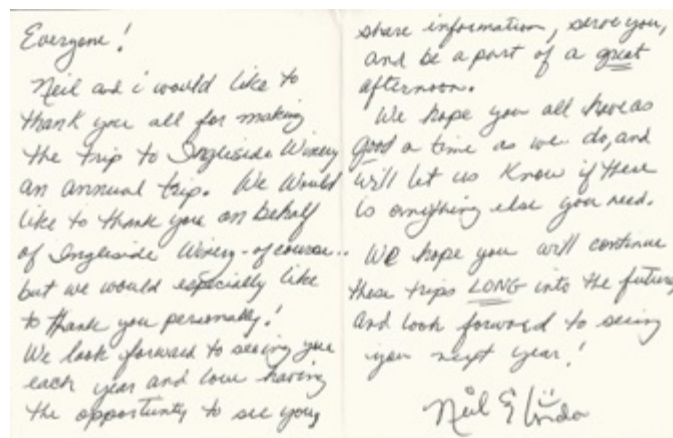 Everyone!
Neil and i would like to
thank you all for making
the trip to Ingleside Winery
an annual trip. We Would
like to thank you on behalf
of Ingleside Winery - of course..
but we would especially like
to thank you personally!
We look forward to seeing you
each year and love having
the opportunity to see you,
share information, serve you,
and be a part of a great
afternoon.
We hope you all have as
good a time as we do, and
will let us know if there
is anything else you need.
We hope you will continue
these trips LONG into the future,
and look forward to seeing
you next year!
Neil & Linda